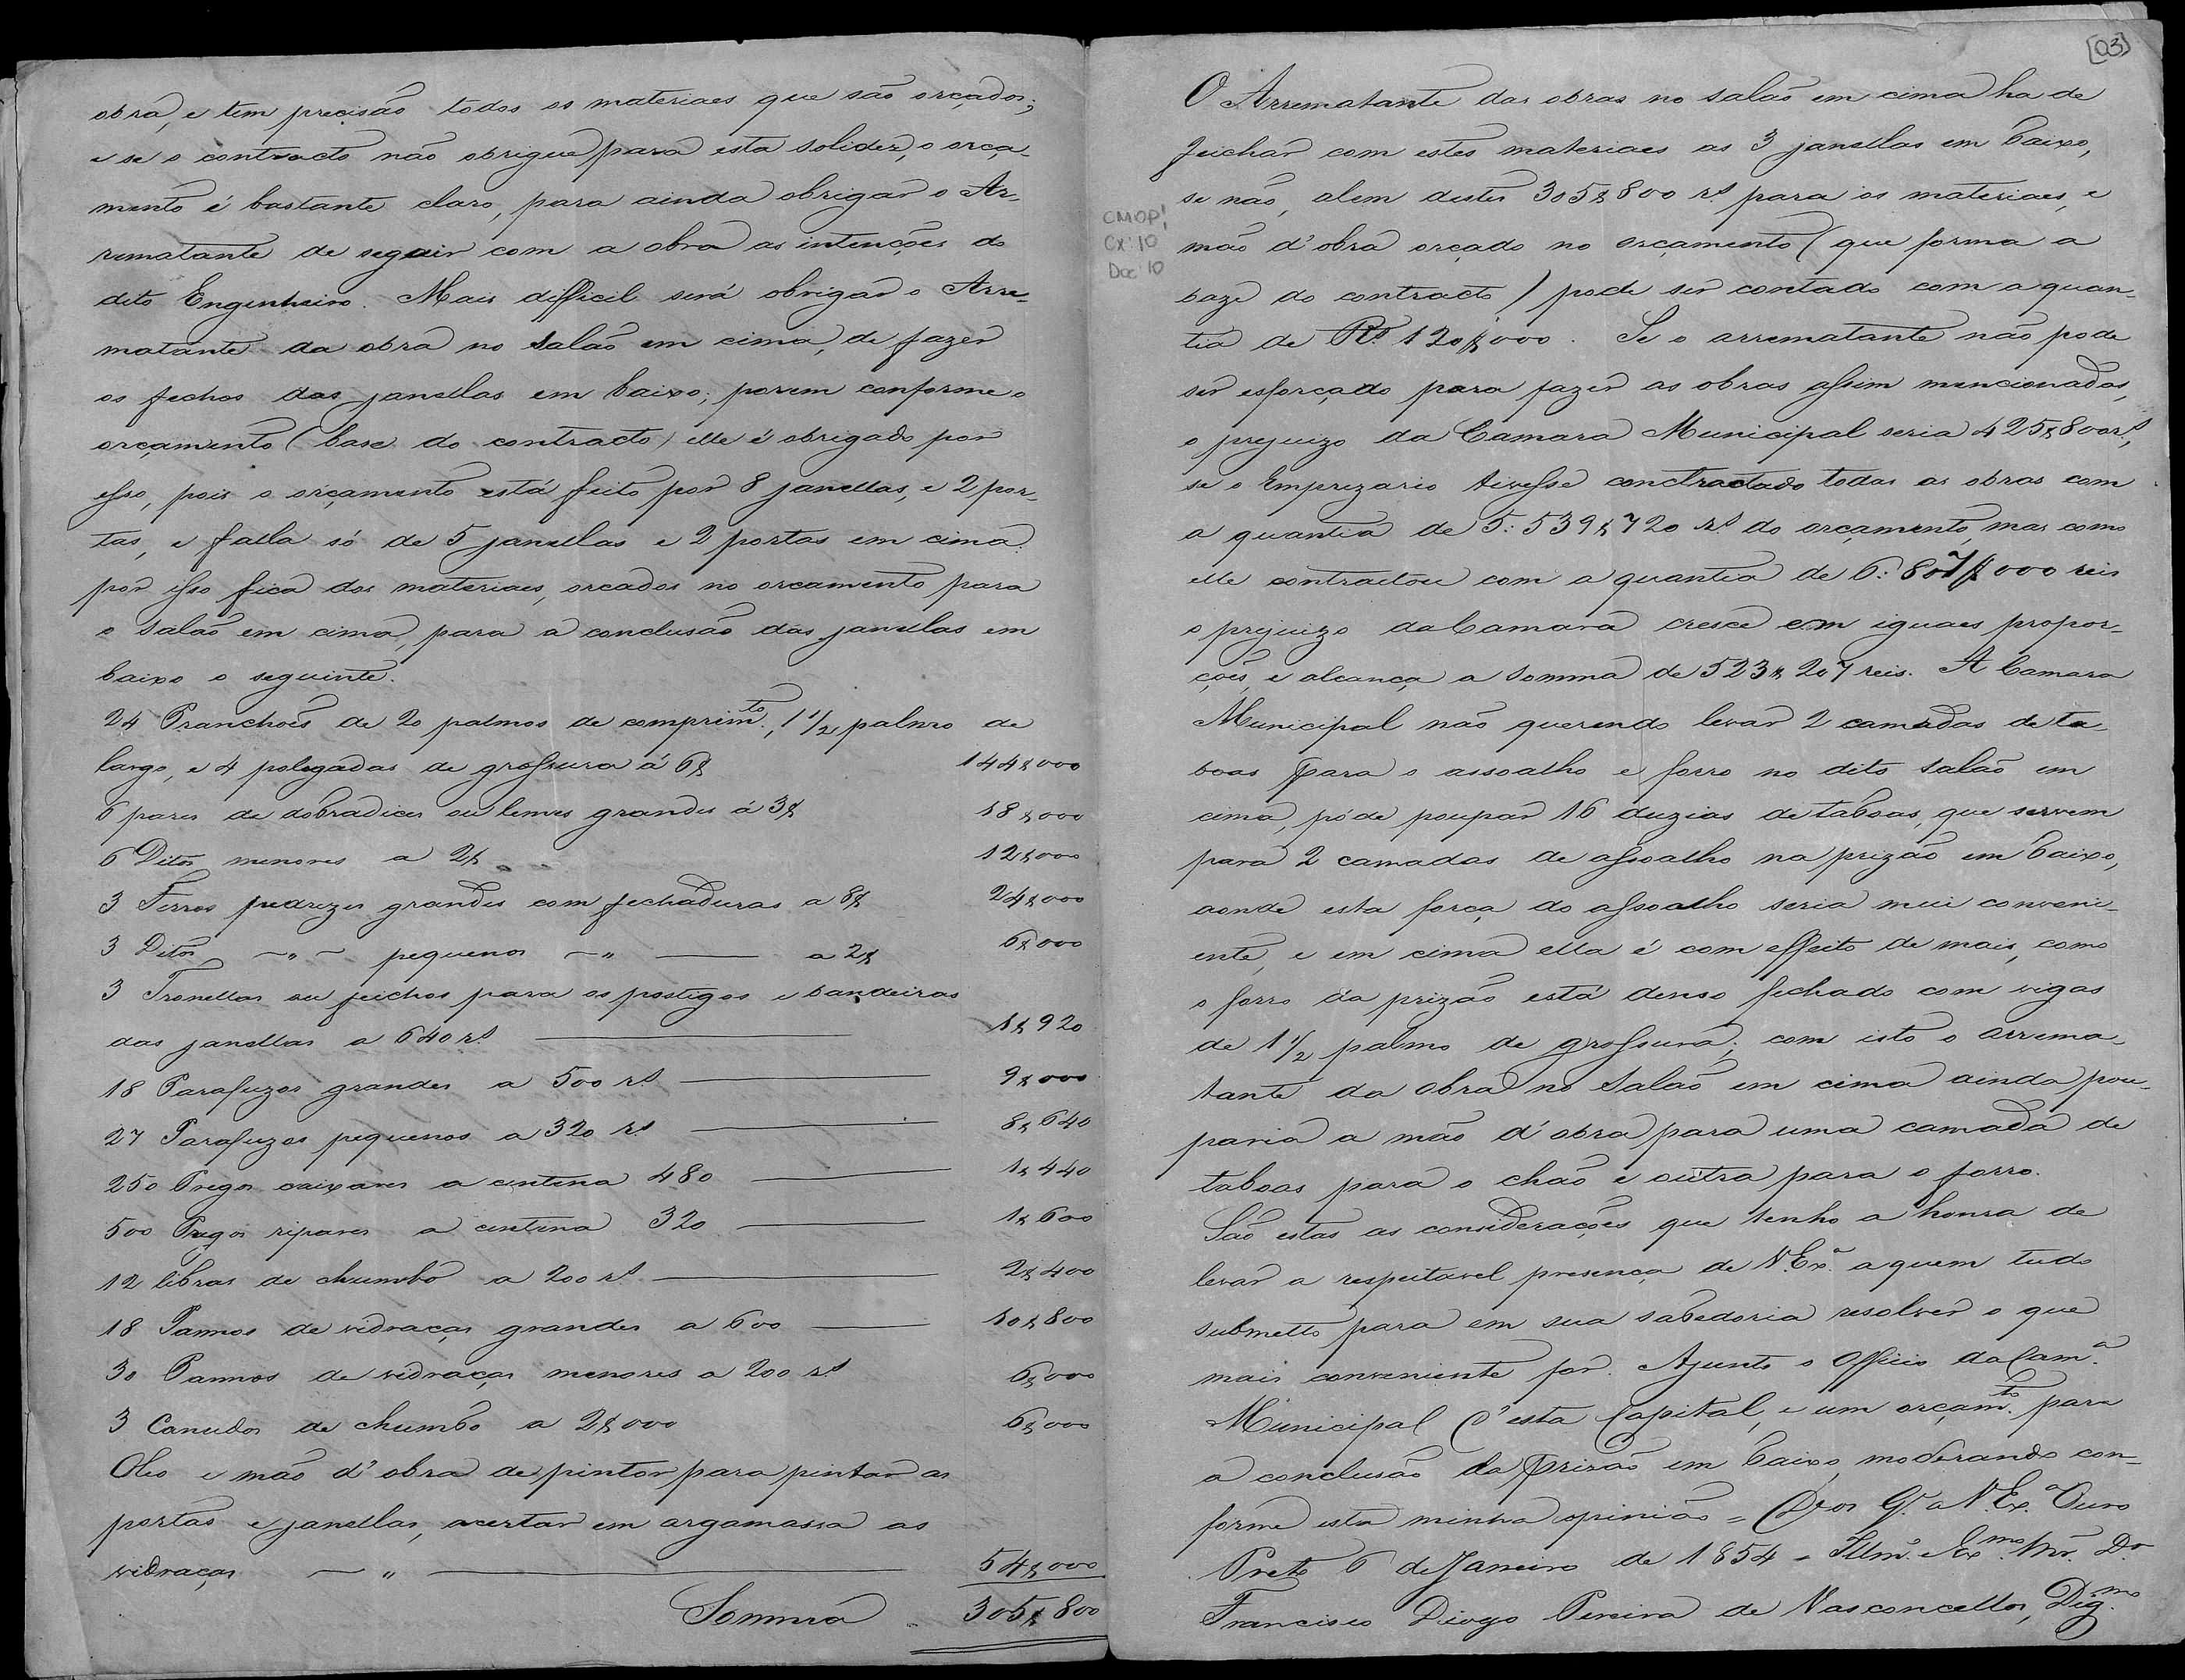 obra, e tem precisão todos os materiaes que são orçados;
e se o contracto não obrigue para esta solidez, o orça-
mento é bastante claro, para ainda obrigar o Ar-
rematante de seguir com a obra as intenções do
dito Engenheiro. Mais difficil será obrigar o Arre-
matante da obra no salão em cima, de fazer
os fechos das janellas em baixo; porem conforme o
orçamento (base do contracto) elle é obrigado por
esso, pois o orçamento está feito por 8 janellas, e 2 por-
tas, e falla só de 5 janellas e 2 portas em cima:
por isso fica dos materiaes, orcados no orcamento para
o salão em cima, para a conclusão das janellas em
baixo o seguinte.
24 Pranchoẽs de 20 palmos de comprim.to, 1 1/2 palmo de
largo, e 4 polegadas de grossura á 6$ 144$000
6 pares de dobradices ou lemes grandes á 3$ 18$000
6 Ditos menores a 2$ 12$000
3 Ferros pedrezes grandes com fechaduras a 8$ 24$000
3 Ditos —"— pequenos —" —— a 2$ 6$000
3 Tronellas ou feichos para os postigos e bandeiras
das janellas a 640 rs —— 1$920
18 Parafuzos grandes a 500 rs —— 9$000
27 Parafuzos pequenos a 320 rs —— 8$640
250 Pregos caixares a centena 480 —— 1$440
500 Pregos ripares a centena 320 —— 1$600
12 libras de chumbo a 200 rs —— 2$400
18 Pannos de vidraças grandes a 600 —— 10$800
30 Pannos de vidraças menores a 200 rs 6$000
3 Canudos de chumbo a 2$000 6$000
Oleo e mão d'obra de pintor para pintar as
portas e janellas, acertar em argamassa as
vidraças —" —— 54$000
Somma 305$800
[03]
CMOP!
Cx: 10
Doc: 10
O Arrematante das obras no salão em cima ha de
feichar com estes materiaes as 3 janellas em baixo,
se não, alem destes 305$800 rs para os materiaes, e
mão d'obra orçado no orçamento (que forma a
baze do contracto) pode ser contado com a quan-
tia de Rs 120$000. Se o arrematante não pode
ser esforçado para fazer as obras assim mencionadas,
o prejuizo da Camara Municipal seria 425$800 rs,
se o Emprezario tivesse conctractado todas as obras com
a quantia de 5:539$720 rs do orçamento, mas como
elle contractou com a quantia de 6:807$000 reis
o prejuizo da Camara cresce em iguaes propor-
ções, e alcança a somma de 523$207 reis. A Camara
Municipal não querendo levar 2 camadas de ta-
boas para o assoalho e forro no dito salão em
cima, póde poupar 16 duzias de taboas, que servem
para 2 camadas de assoalho na prizão em baixo,
aonde esta força do assoalho seria mui conveni-
ente, e em cima ella é com effeito de mais, como
o forro da prizão está denso fechado com vigas
de 1 1/2 palmo de grossura; com isto o arrema-
tante da obra no salão em cima ainda pou-
paria a mão d'obra para uma camada de
taboas para o chão e outra para o forro.
São estas as considerações que tenho a honra de
levar a respeitavel presença de V.Ex.a a quem tudo
submetto para em sua sabedoria resolver o que
mais conveniente for. Ajunto o Officio da Cam.a
Municipal d'esta Capital, e um orçam.to para
a conclusão da prizão em baixo, moderando con-
forme esta minha opinião = Deos G.e a V.Ex.a Ouro
Preto 6 de Janeiro de 1854 = Illm.o Ex.mo Snr. D.or
Francisco Diogo Pereira de Vasconcellos, Dig.mo